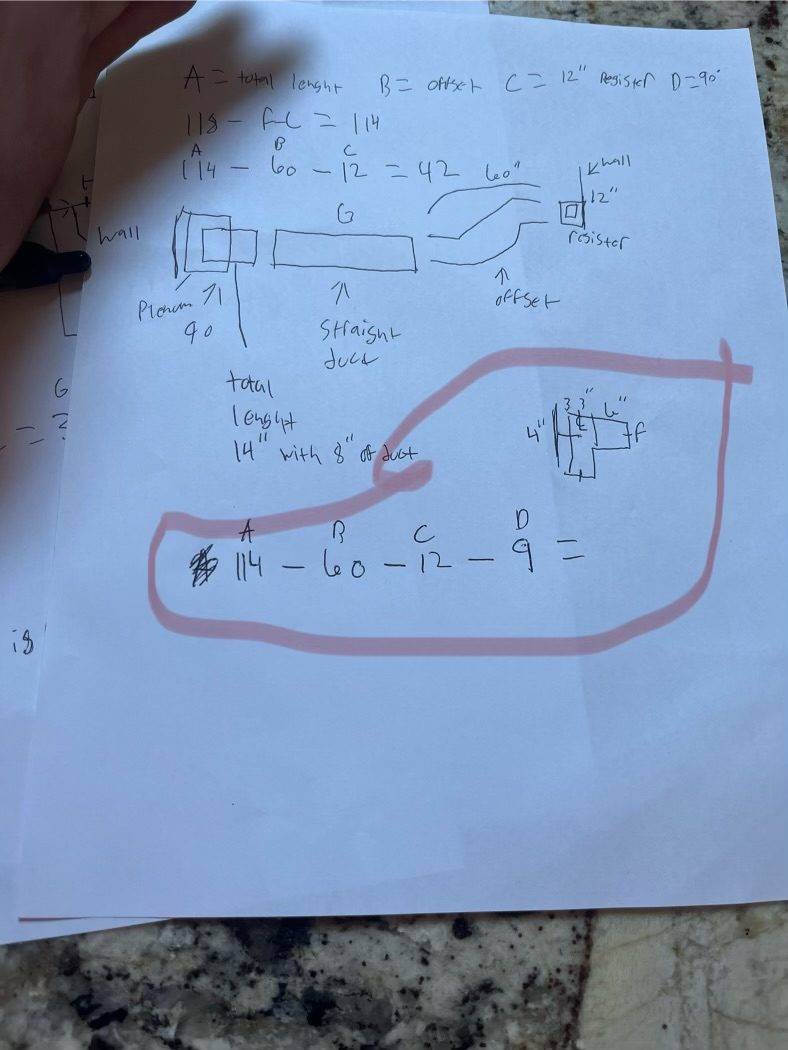 A = total lenght B = offset C = 12" Register D = 90°
118 - F-C = 114
A B C
114 - 60 - 12 = 42 60"
wall
12"
G
wall
resister
offset
Plenum
90
straight
duct
total
lenght
14" with 8" of duct
3 3" 6"
4" F
A B C D
114 - 60 - 12 - 9 =
G
= 3
is